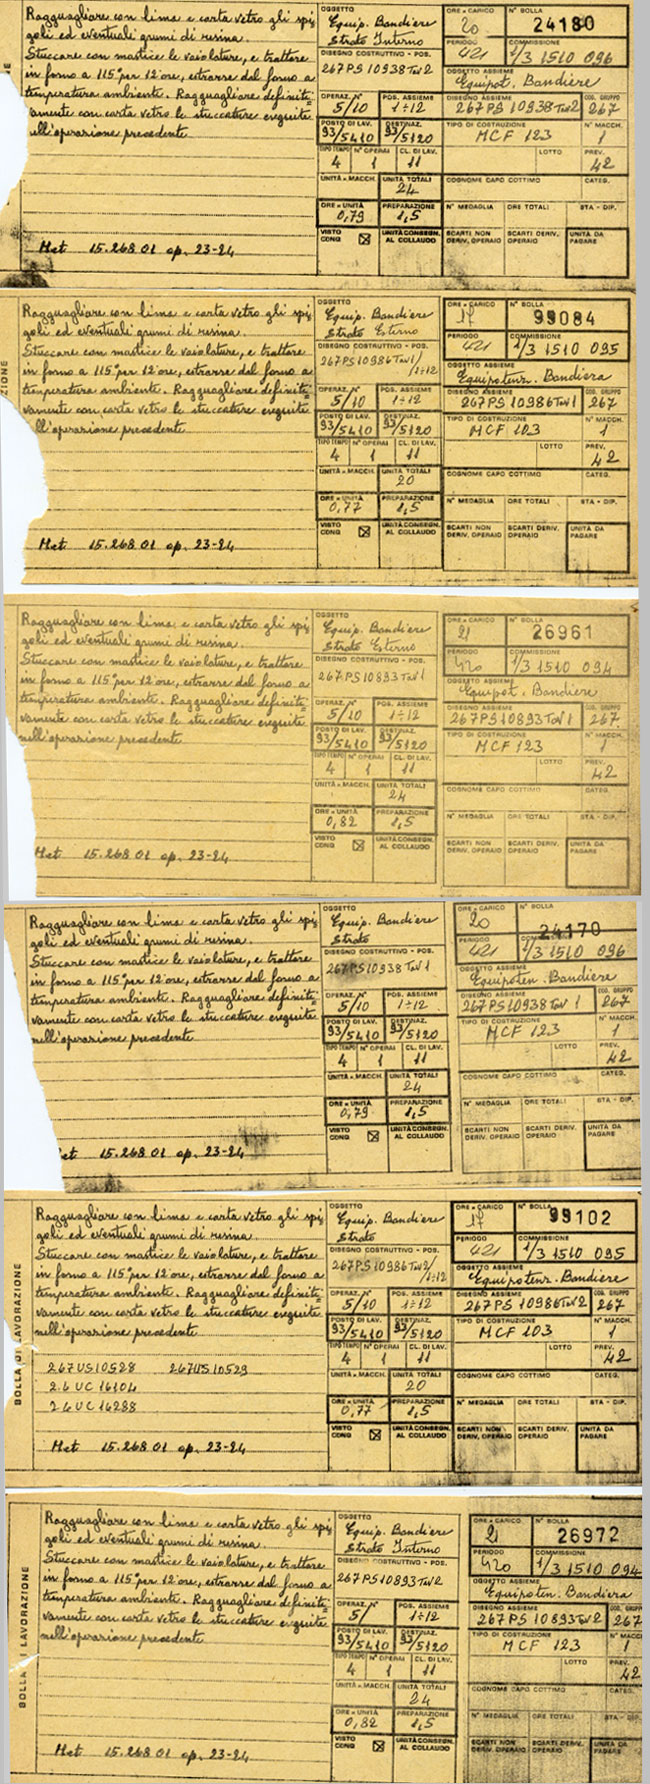 Ragguagliare con lima e carta vetro gli spi=
goli ed eventuali grumi di resina.
Stuccare con mastice le vaiolature, e trattare
in forno a 115° per 12 ore, estrarre dal forno a
temperatura ambiente. Ragguagliare definiti=
vamente con carta vetro le stuccature eseguite
nell'operazione precedente
Met 15.268.01 op. 23-24
OGGETTO
Equip. Bandiere
Strato Interno
DISEGNO COSTRUTTIVO - POS.
267PS10938Tav2
OPERAZ. N° POS. ASSIEME
5/10 1÷12
POSTO DI LAV. DESTINAZ.
93/5410 93/5120
TIPO TEMPO N° OPERAI CL. DI LAV.
4 1 11
UNITÀ x MACCH. UNITÀ TOTALI
24
ORE x UNITÀ PREPARAZIONE
0,79 1,5
VISTO CONG UNITÀ CONSEGN. AL COLLAUDO
ORE x CARICO N° BOLLA
20 24180
PERIODO COMMISSIONE
421 1/3 1510 096
OGGETTO ASSIEME
Equipot. Bandiere
DISEGNO ASSIEME COD. GRUPPO
267PS10938Tav2 267
TIPO DI COSTRUZIONE N° MACCH.
MCF 123 1
LOTTO PREV.
42
COGNOME CAPO COTTIMO CATEG.
N° MEDAGLIA ORE TOTALI STA - DIP.
SCARTI NON DERIV. OPERAIO SCARTI DERIV. OPERAIO UNITÀ DA PAGARE
ZIONE
Ragguagliare con lima e carta vetro gli spi=
goli ed eventuali grumi di resina.
Stuccare con mastice le vaiolature, e trattare
in forno a 115° per 12 ore, estrarre dal forno a
temperatura ambiente. Ragguagliare definiti=
vamente con carta vetro le stuccature eseguite
nell'operazione precedente
Met 15.268.01 op. 23-24
OGGETTO
Equip. Bandiere
Strato Esterno
DISEGNO COSTRUTTIVO - POS.
267PS10986Tav1/
1÷12
OPERAZ. N° POS. ASSIEME
5/10 1÷12
POSTO DI LAV. DESTINAZ.
93/5410 93/5120
TIPO TEMPO N° OPERAI CL. DI LAV.
4 1 11
UNITÀ x MACCH. UNITÀ TOTALI
20
ORE x UNITÀ PREPARAZIONE
0,77 1,5
VISTO CONG UNITÀ CONSEGN. AL COLLAUDO
ORE x CARICO N° BOLLA
17 99084
PERIODO COMMISSIONE
421 1/3 1510 095
OGGETTO ASSIEME
Equipotenz. Bandiera
DISEGNO ASSIEME COD. GRUPPO
267PS10986Tav1 267
TIPO DI COSTRUZIONE N° MACCH.
MCF 103 1
LOTTO PREV.
42
COGNOME CAPO COTTIMO CATEG.
N° MEDAGLIA ORE TOTALI STA - DIP.
SCARTI NON DERIV. OPERAIO SCARTI DERIV. OPERAIO UNITÀ DA PAGARE
Ragguagliare con lima e carta vetro gli spi=
goli ed eventuali grumi di resina.
Stuccare con mastice le vaiolature, e trattare
in forno a 115° per 12 ore, estrarre dal forno a
temperatura ambiente. Ragguagliare definiti=
vamente con carta vetro le stuccature eseguite
nell'operazione precedente
Met 15.268.01 op. 23-24
OGGETTO
Equip. Bandiere
Strato Esterno
DISEGNO COSTRUTTIVO - POS.
267PS10893Tav1
OPERAZ. N° POS. ASSIEME
5/10 1÷12
POSTO DI LAV. DESTINAZ.
93/5410 93/5120
TIPO TEMPO N° OPERAI CL. DI LAV.
4 1 11
UNITÀ x MACCH. UNITÀ TOTALI
24
ORE x UNITÀ PREPARAZIONE
0,82 1,5
VISTO CONG UNITÀ CONSEGN. AL COLLAUDO
ORE x CARICO N° BOLLA
21 26961
PERIODO COMMISSIONE
420 1/3 1510 094
OGGETTO ASSIEME
Equipot. Bandiere
DISEGNO ASSIEME COD. GRUPPO
267PS10893Tav1 267
TIPO DI COSTRUZIONE N° MACCH.
MCF 123 1
LOTTO PREV.
42
COGNOME CAPO COTTIMO CATEG.
N° MEDAGLIA ORE TOTALI STA - DIP.
SCARTI NON DERIV. OPERAIO SCARTI DERIV. OPERAIO UNITÀ DA PAGARE
Ragguagliare con lima e carta vetro gli spi=
goli ed eventuali grumi di resina.
Stuccare con mastice le vaiolature, e trattare
in forno a 115° per 12 ore, estrarre dal forno a
temperatura ambiente. Ragguagliare definiti=
vamente con carta vetro le stuccature eseguite
nell'operazione precedente
et 15.268.01 op. 23-24
OGGETTO
Equip. Bandiere
Strato
DISEGNO COSTRUTTIVO - POS.
267PS10938Tav1
OPERAZ. N° POS. ASSIEME
5/10 1÷12
POSTO DI LAV. DESTINAZ.
93/5410 93/5120
TIPO TEMPO N° OPERAI CL. DI LAV.
4 1 11
UNITÀ x MACCH. UNITÀ TOTALI
24
ORE x UNITÀ PREPARAZIONE
0,79 1,5
VISTO CONG UNITÀ CONSEGN. AL COLLAUDO
ORE x CARICO N° BOLLA
20 24170
PERIODO COMMISSIONE
421 1/3 1510 096
OGGETTO ASSIEME
Equipoten. Bandiere
DISEGNO ASSIEME COD. GRUPPO
267PS10938Tav1 267
TIPO DI COSTRUZIONE N° MACCH.
MCF 123 1
LOTTO PREV.
42
COGNOME CAPO COTTIMO CATEG.
N° MEDAGLIA ORE TOTALI STA - DIP.
SCARTI NON DERIV. OPERAIO SCARTI DERIV. OPERAIO UNITÀ DA PAGARE
BOLLA DI LAVORAZIONE
Ragguagliare con lima e carta vetro gli spi=
goli ed eventuali grumi di resina.
Stuccare con mastice le vaiolature, e trattare
in forno a 115° per 12 ore, estrarre dal forno a
temperatura ambiente. Ragguagliare definiti=
vamente con carta vetro le stuccature eseguite
nell'operazione precedente
267US10528 267US10529
26UC16104
26UC16288
Met 15.268.01 op. 23-24
OGGETTO
Equip. Bandiere
Strato
DISEGNO COSTRUTTIVO - POS.
267PS10986Tav2/
1÷12
OPERAZ. N° POS. ASSIEME
5/10 1÷12
POSTO DI LAV. DESTINAZ.
93/5410 93/5120
TIPO TEMPO N° OPERAI CL. DI LAV.
4 1 11
UNITÀ x MACCH. UNITÀ TOTALI
20
ORE x UNITÀ PREPARAZIONE
0,77 1,5
VISTO CONG UNITÀ CONSEGN. AL COLLAUDO
ORE x CARICO N° BOLLA
17 99102
PERIODO COMMISSIONE
421 1/3 1510 095
OGGETTO ASSIEME
Equipotenz. Bandiere
DISEGNO ASSIEME COD. GRUPPO
267PS10986Tav2 267
TIPO DI COSTRUZIONE N° MACCH.
MCF 103 1
LOTTO PREV.
42
COGNOME CAPO COTTIMO CATEG.
N° MEDAGLIA ORE TOTALI STA - DIP.
SCARTI NON DERIV. OPERAIO SCARTI DERIV. OPERAIO UNITÀ DA PAGARE
BOLLA DI LAVORAZIONE
Ragguagliare con lima e carta vetro gli spi=
goli ed eventuali grumi di resina.
Stuccare con mastice le vaiolature, e trattare
in forno a 115° per 12 ore, estrarre dal forno a
temperatura ambiente. Ragguagliare definiti=
vamente con carta vetro le stuccature eseguite
nell'operazione precedente
Met 15.268.01 op. 23-24
OGGETTO
Equip. Bandiere
Strato Interno
DISEGNO COSTRUTTIVO - POS.
267PS10893Tav2
OPERAZ. N° POS. ASSIEME
5/ 1÷12
POSTO DI LAV. DESTINAZ.
93/5410 93/5120
TIPO TEMPO N° OPERAI CL. DI LAV.
4 1 11
UNITÀ x MACCH. UNITÀ TOTALI
24
ORE x UNITÀ PREPARAZIONE
0,82 1,5
VISTO CONG UNITÀ CONSEGN. AL COLLAUDO
ORE x CARICO N° BOLLA
21 26972
PERIODO COMMISSIONE
420 1/3 1510 094
OGGETTO ASSIEME
Equipoten. Bandiera
DISEGNO ASSIEME COD. GRUPPO
267PS10893Tav2 267
TIPO DI COSTRUZIONE N° MACC
MCF 123 1
LOTTO PREV.
42
COGNOME CAPO COTTIMO CATEG.
N° MEDAGLIA ORE TOTALI STA - DIP.
SCARTI NON DERIV. OPERAIO SCARTI DERIV. OPERAIO UNITÀ DA PAGARE